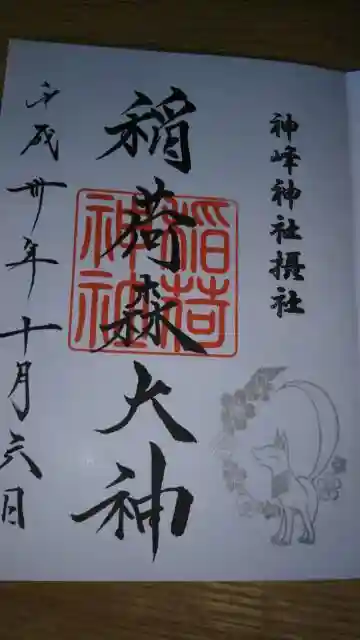 神峰神社摂社
稲荷森大神
稲荷神社
平成卅年十月六日